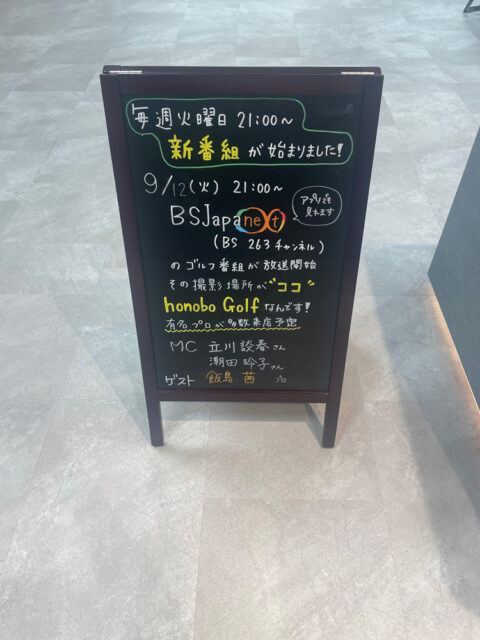 毎週火曜日 21:00～
新番組が始まりました!
9/12(火) 21:00～
BSJapanext
アプリでも
見れます
(BS 263チャンネル)
のゴルフ番組が放送開始
その撮影場所が"ココ"
honobo Golfなんです!
有名プロが多数来店予定
MC 立川談春さん
潮田玲子さん
ゲスト 飯島茜プロ